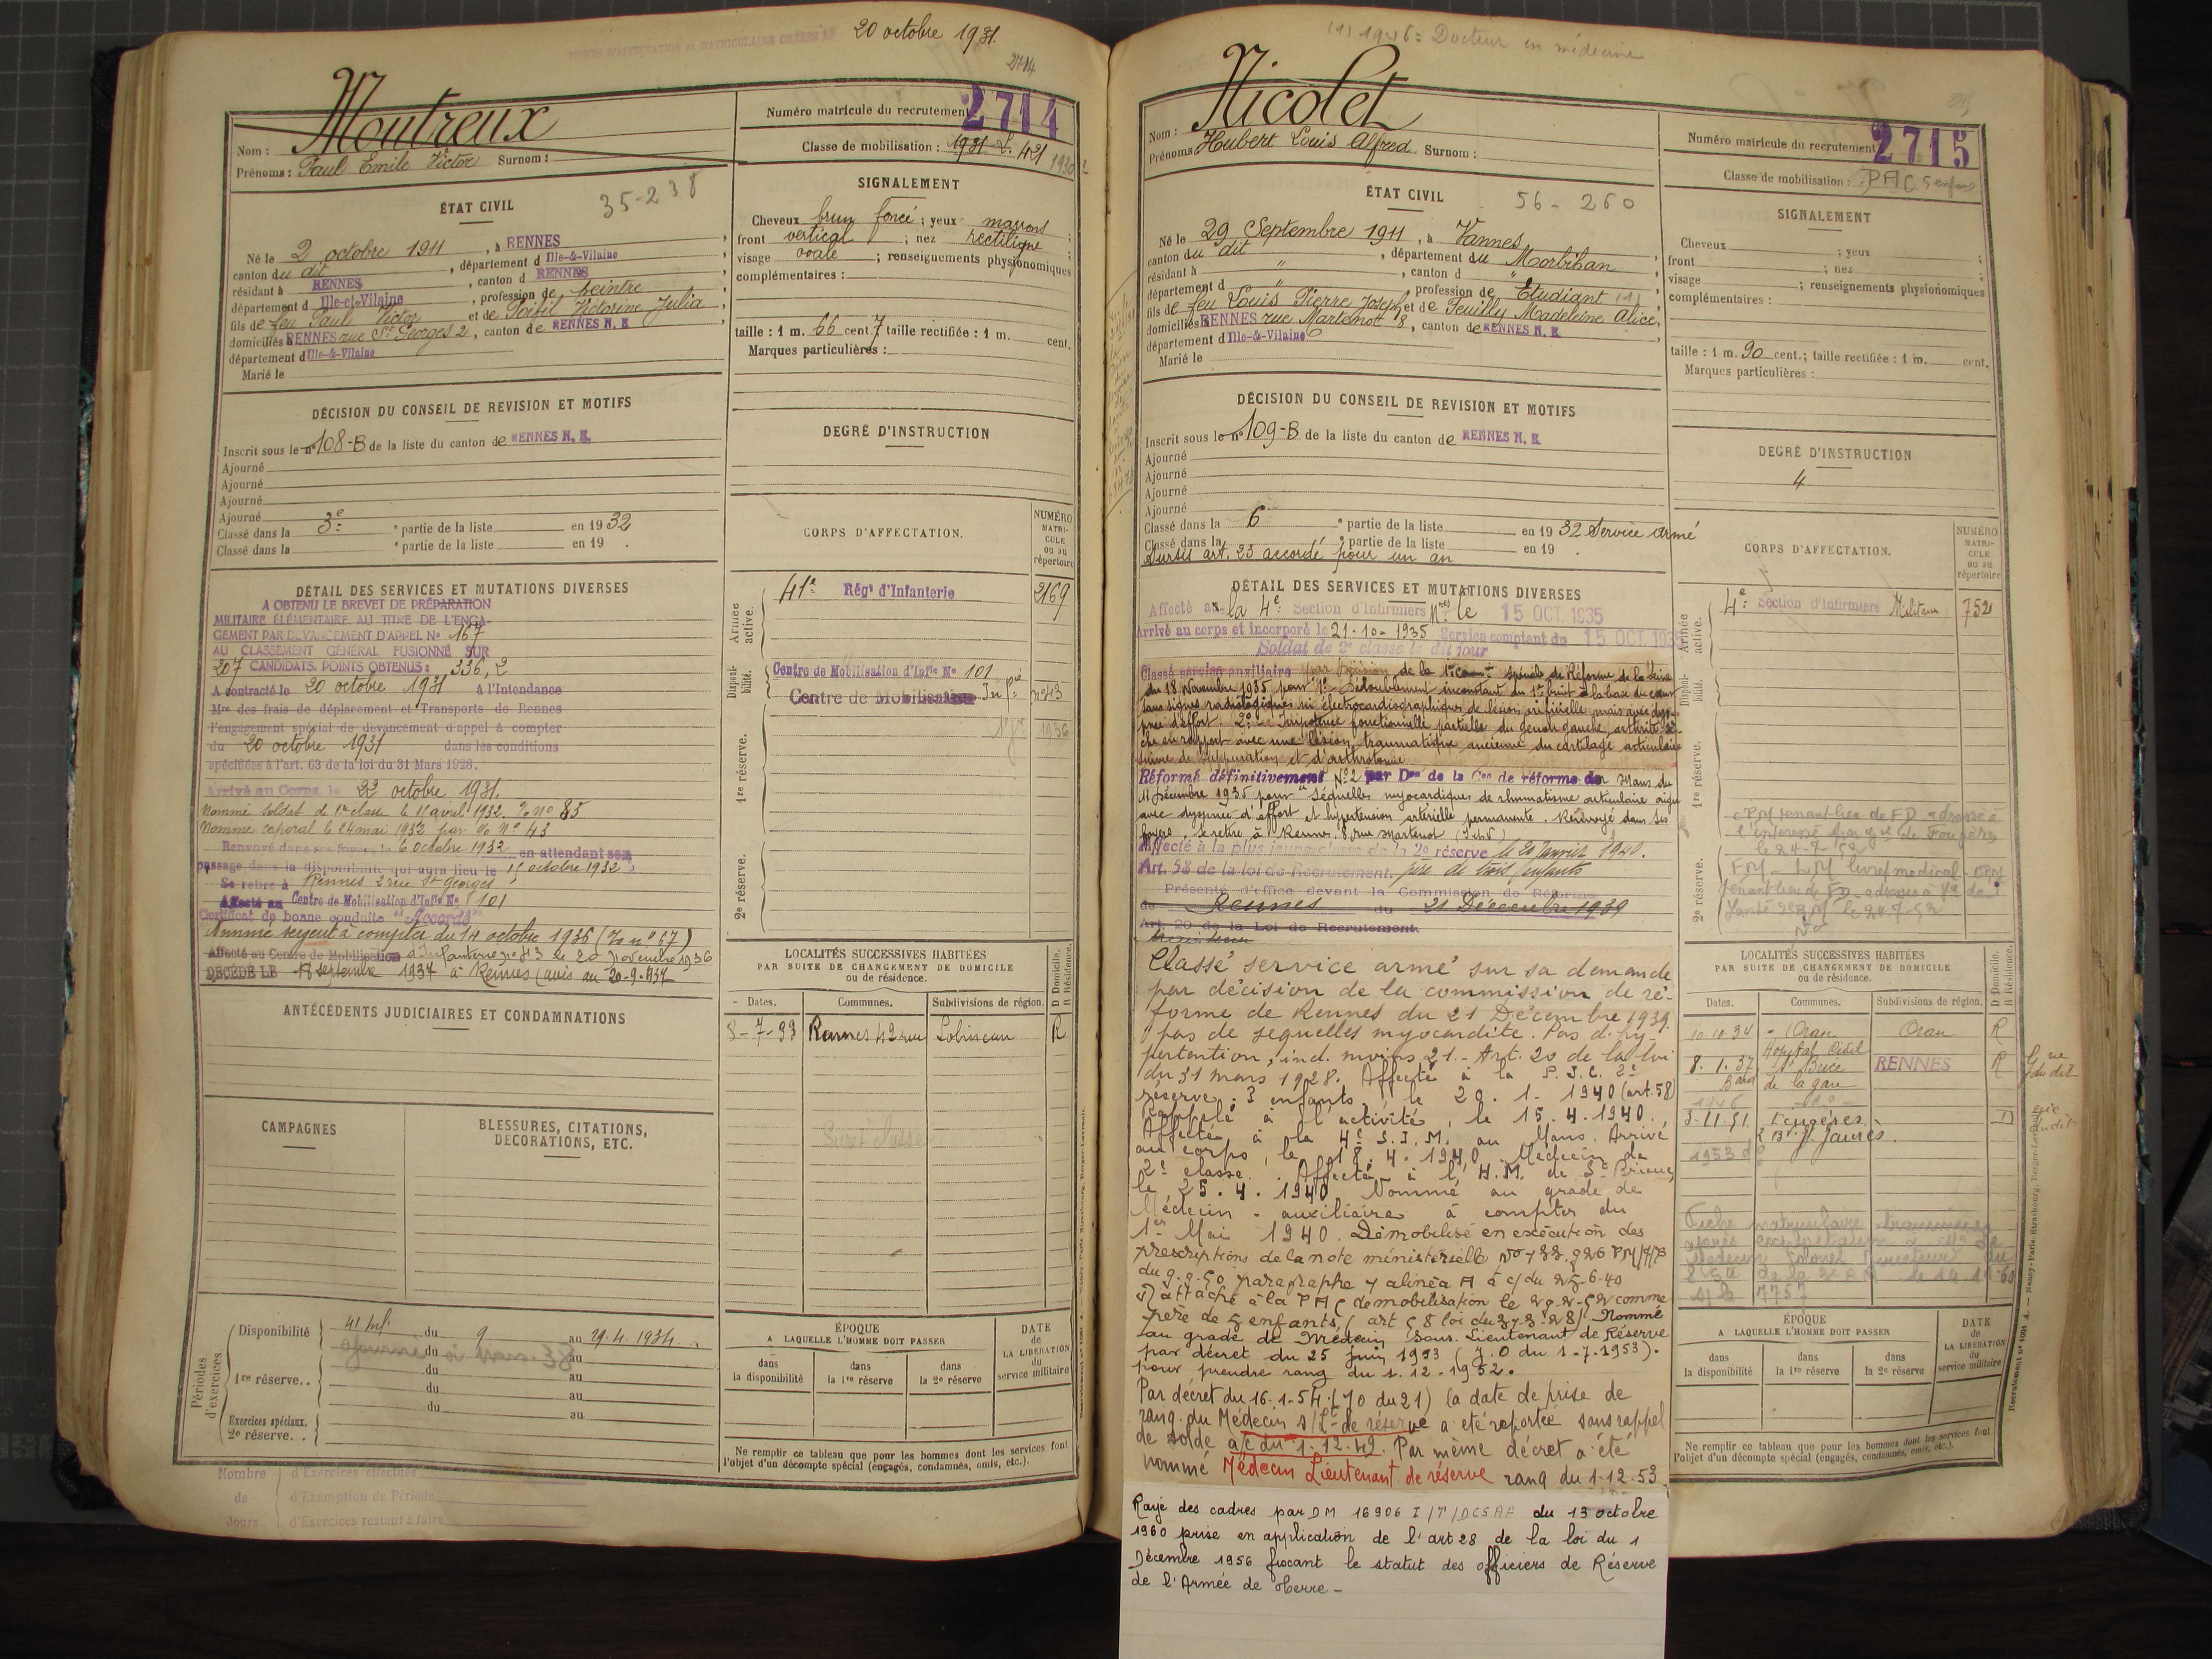 20 octobre 1931.
2714
Montreux
Nom :
Prénoms : Paul Emile Victor Surnom :
Numéro matricule du recrutement 2714
Classe de mobilisation : 1931 L. 421
1930
ÉTAT CIVIL
35-238
Né le 2 octobre 1911, à RENNES,
canton du dit, département d Ille-&-Vilaine,
résidant à RENNES, canton d RENNES
département d Ille-et-Vilaine, profession de peintre,
fils de feu Paul Victor et de Poifil Victorine Julia,
domiciliés RENNES rue St Georges 2, canton de RENNES N. E.
département d Ille-&-Vilaine
Marié le
SIGNALEMENT
Cheveux brun foncé ; yeux marrons ;
front vertical ; nez rectiligne ;
visage ovale ; renseignements physionomiques
complémentaires :
taille : 1 m. 66 cent. 7 taille rectifiée : 1 m. cent.
Marques particulières :
DÉCISION DU CONSEIL DE REVISION ET MOTIFS
Inscrit sous le n° 108-B de la liste du canton de RENNES N. E.
Ajourné
Ajourné
Ajourné
Ajourné
Classé dans la 3e ° partie de la liste en 1932
Classé dans la ° partie de la liste en 19 .
DEGRÉ D'INSTRUCTION
CORPS D'AFFECTATION.
NUMÉRO MATRI- CULE ou au répertoire
Armée active.
41e Régt d'Infanterie 2169
Disponi- bilité.
Centre de Mobilisation d'Infie N° 101
Centre de Mobilisation n° 43
1936
1re réserve.
2e réserve.
DÉTAIL DES SERVICES ET MUTATIONS DIVERSES
A OBTENU LE BREVET DE PRÉPARATION
MILITAIRE ÉLÉMENTAIRE AU TITRE DE L'ENGA-
GEMENT PAR DEVANCEMENT D'APPEL N° 167
AU CLASSEMENT GÉNÉRAL FUSIONNÉ SUR
207 CANDIDATS. POINTS OBTENUS : 336,2
A contracté le 20 octobre 1931 à l'Intendance
Mre des frais de déplacement et Transports de Rennes
l'engagement spécial de devancement d'appel à compter
du 20 octobre 1931 dans les conditions
spécifiées à l'art. 63 de la loi du 31 Mars 1928.
Arrivé au Corps le 22 octobre 1931.
Nommé soldat de 1re classe le 11 avril 1932. % n° 85
Nommé caporal le 24 mai 1932 par % N° 43
Renvoyé dans ses foyers le 6 octobre 1932 en attendant son
passage dans la disponibilité qui aura lieu le 15 octobre 1932
Se retire à Rennes 2 rue St Georges
Affecté au Centre de Mobilisation d'Infie N° 101
Certificat de bonne conduite "Accordé"
Nommé sergent à compter du 14 octobre 1936 (% n° 67)
Affecté au Centre de Mobilisation d'Infanterie n° 43 le 20 novembre 1936
DÉCÉDÉ LE 18 septembre 1937 à Rennes (avis du 20-9-1937
ANTÉCÉDENTS JUDICIAIRES ET CONDAMNATIONS
LOCALITÉS SUCCESSIVES HABITÉES
PAR SUITE DE CHANGEMENT DE DOMICILE
ou de résidence.
D Domicile. R Résidence.
Dates. Communes. Subdivisions de région.
8-7-33 Rennes 42 rue Lobineau R
CAMPAGNES
BLESSURES, CITATIONS,
DÉCORATIONS, ETC.
Périodes d'exercices
Disponibilité 41 Inf. du 9 au 29.4.1934
du au
1re réserve.. du au
du au
du au
Exercices spéciaux.
2e réserve. .
Nombre de Jours
d'Exercices effectués
d'Exemption de Période
d'Exercices restant à faire
ÉPOQUE
A LAQUELLE L'HOMME DOIT PASSER
dans la disponibilité
dans la 1re réserve
dans la 2e réserve
DATE de LA LIBÉRATION du service militaire
Ne remplir ce tableau que pour les hommes dont les services font
l'objet d'un décompte spécial (engagés, condamnés, omis, etc.).
(1) 1946 = Docteur en médecine
Nicolet
Nom :
Prénoms Hubert Louis Alfred Surnom :
Numéro matricule du recrutement 2715
Classe de mobilisation : PAC 5 enfants
ÉTAT CIVIL
56-260
Né le 29 Septembre 1911, à Vannes,
canton du dit, département du Morbihan,
résidant à ", canton d "
département d ", profession de Étudiant (1)
fils de feu Louis Pierre Joseph et de Feuilly Madeleine Alice,
domiciliés RENNES rue Martenot 8, canton de RENNES N. E.
département d Ille-&-Vilaine
Marié le
SIGNALEMENT
Cheveux ; yeux ;
front ; nez ;
visage ; renseignements physionomiques
complémentaires :
taille : 1 m. 90 cent.; taille rectifiée : 1 m. cent.
Marques particulières :
DÉCISION DU CONSEIL DE REVISION ET MOTIFS
Inscrit sous le n° 109-B de la liste du canton de RENNES N. E.
Ajourné
Ajourné
Ajourné
Ajourné
Classé dans la 6 ° partie de la liste en 1932 Service armé
Classé dans la ° partie de la liste en 19 .
Sursis art. 23 accordé pour un an
DEGRÉ D'INSTRUCTION
4
CORPS D'AFFECTATION.
NUMÉRO MATRI- CULE ou au répertoire
Armée active.
4e Section d'Infirmiers Militaires 752
Disponi- bilité.
1re réserve.
2e réserve.
DÉTAIL DES SERVICES ET MUTATIONS DIVERSES
Affecté à la 4e Section d'Infirmiers Mres le 15 OCT. 1935
Arrivé au corps et incorporé le 21-10-1935 Service comptant du 15 OCT. 1935
Soldat de 2e classe le dit jour
Classé service auxiliaire par décision de la 1re Comon spéciale de Réforme de la Seine
du 18 Novembre 1935 pour 1° Dédoublement inconstant du 1er bruit à la base du cœur
sans signes radiologiques ni électrocardiographiques de lésion orificielle mais avec dysp-
née d'effort. 2° Impotence fonctionnelle partielle du genou gauche, arthrite sè-
che en rapport avec une lésion traumatique ancienne du cartilage articulaire
suivie de suppuration et d'arthrotomie
Réformé définitivement N°2 par Don de la Con de réforme du Mans du
11 Décembre 1935 pour "séquelles myocardiques de rhumatisme articulaire aigu
avec dyspnée d'effort et hypertension artérielle permanente. Renvoyé dans ses
foyers, se retire à Rennes, 8 rue Martenot
Affecté à la plus jeune classe de la 2e réserve le 20 Janvier 1940.
Art. 58 de la loi de Recrutement. père de trois enfants
Présenté d'office devant la Commission de Réforme
de Rennes du 21 Décembre 1939
Art. 20 de la Loi de Recrutement.
Classé service armé sur sa demande
par décision de la commission de ré-
forme de Rennes du 21 Décembre 1939.
pas de sequelles myocardite. Pas d'hy-
pertention, ind. moins 21.- Art. 20 de la loi
du 31 mars 1928. Affecté à la P.J.C. 2e
réserve : 3 enfants, le 20.1.1940 (art. 58)
Rappelé à l'activité, le 15.4.1940.
Affecté à la 4e S.I.M. au Mans. Arrivé
au corps, le 18.4.1940. Médecin de
2e classe. Affecté à l'H.M. de St Brieuc,
le 25.4.1940 Nommé au grade de
Médecin - auxiliaire à compter du
1er Mai 1940. Démobilisé en exécution des
prescriptions de la note ministérielle
du 9.9.50 paragraphe 7 alinéa A à c/ du 25-6-40
Rattaché à la PAC de mobilisation le 29-2-52 comme
père de 5 enfants, (art 58 loi du 31-3-28). Nommé
au grade de Médecin Sous. Lieutenant de Réserve
par décret du 25 juin 1953 (J.O du 1-7-1953).
pour prendre rang du 1.12.1952.
Par décret du 16.1.54 (JO du 21) la date de prise de
rang du Médecin s/Lt de réserve a été reportée sans rappel
de solde a/c du 1.12.49. Par même décret a été
nommé Médecin Lieutenant de réserve rang du 1.12.53.
Rayé des cadres par DM 16906 I/T/DCSAA du 13 octobre
1960 prise en application de l'art 28 de la loi du 1
Décembre 1956 fixant le statut des officiers de Réserve
de l'Armée de Terre -
OPM tenant lieu de FD adressé à
l'intéressé par gie de Fougères
le 24-7-52
LOCALITÉS SUCCESSIVES HABITÉES
PAR SUITE DE CHANGEMENT DE DOMICILE
ou de résidence.
D Domicile. R Résidence.
Dates. Communes. Subdivisions de région.
10.10.34 - Oran Oran R
Hôpital Civil
8.1.37 St Brice RENNES R
Bard de la gare
1946
3-11-51 Fougères D
2 Bd J. Jaurès.
1953
ÉPOQUE
A LAQUELLE L'HOMME DOIT PASSER
dans la disponibilité
dans la 1re réserve
dans la 2e réserve
DATE de LA LIBÉRATION du service militaire
Ne remplir ce tableau que pour les hommes dont les services font
l'objet d'un décompte spécial (engagés, condamnés, omis, etc.).